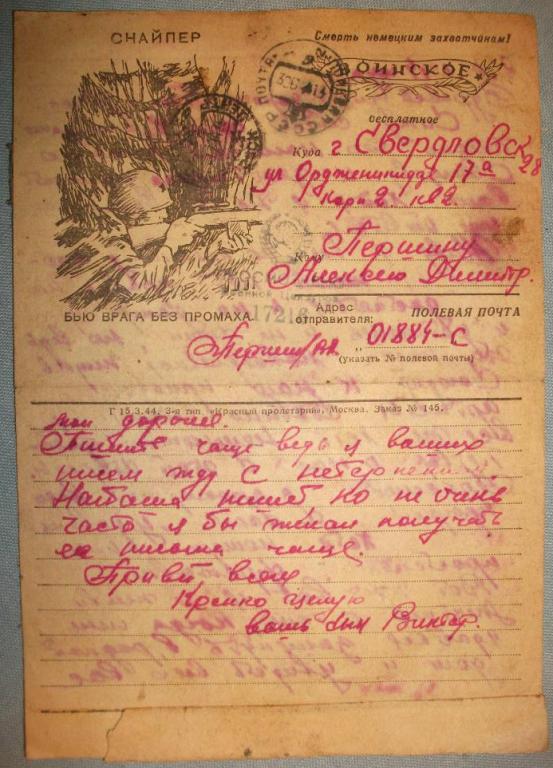 СНАЙПЕР
Смерть немецким захватчикам!
ВОИНСКОЕ
бесплатное
Куда г Свердловск 28
ул Орджоникидзе 17а
корп 2. кв 2.
Кому Першину
Алексею Димитр.
БЬЮ ВРАГА БЕЗ ПРОМАХА.
Адрес отправителя:
ПОЛЕВАЯ ПОЧТА
01884-С
(указать № полевой почты)
Г 15.3.44. 3-я тип. «Красный пролетарий», Москва. Заказ № 145.
мои дорогие.
Пишите чаще ведь я ваших
писем жду с нетерпением
Наташа пишет но не очень
часто я бы желал получать
ее письма чаще.
Привет всем
Крепко целую
ваш сын Виктор.